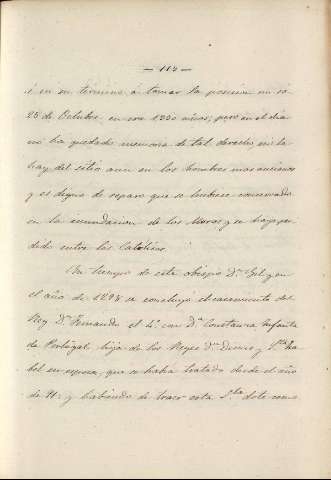 — 112 —
é en su termino á tomar la posesion en
25 de Octubre en era 1330 años; pero en el dia
no ha quedado memoria de tal derecho, ni la
hay del sitio aun en los hombres mas ancianos
y es digno de reparo que se hubiese conservado
en la inundacion de los Moros y se haya per-
dido entre los Catolicos.
En tiempo de este obispo Dn. Gil y en
el año de 1298 se concluyo el casamiento del
Rey Dn. Fernando el 4.º con Da. Constanza Infanta
de Portugal hija de los Reyes Dn. Dionis y Sta. Isa
bel su esposa, que se habia tratado desde el año
de 91: y habiendo de traer esta Sra. dote como